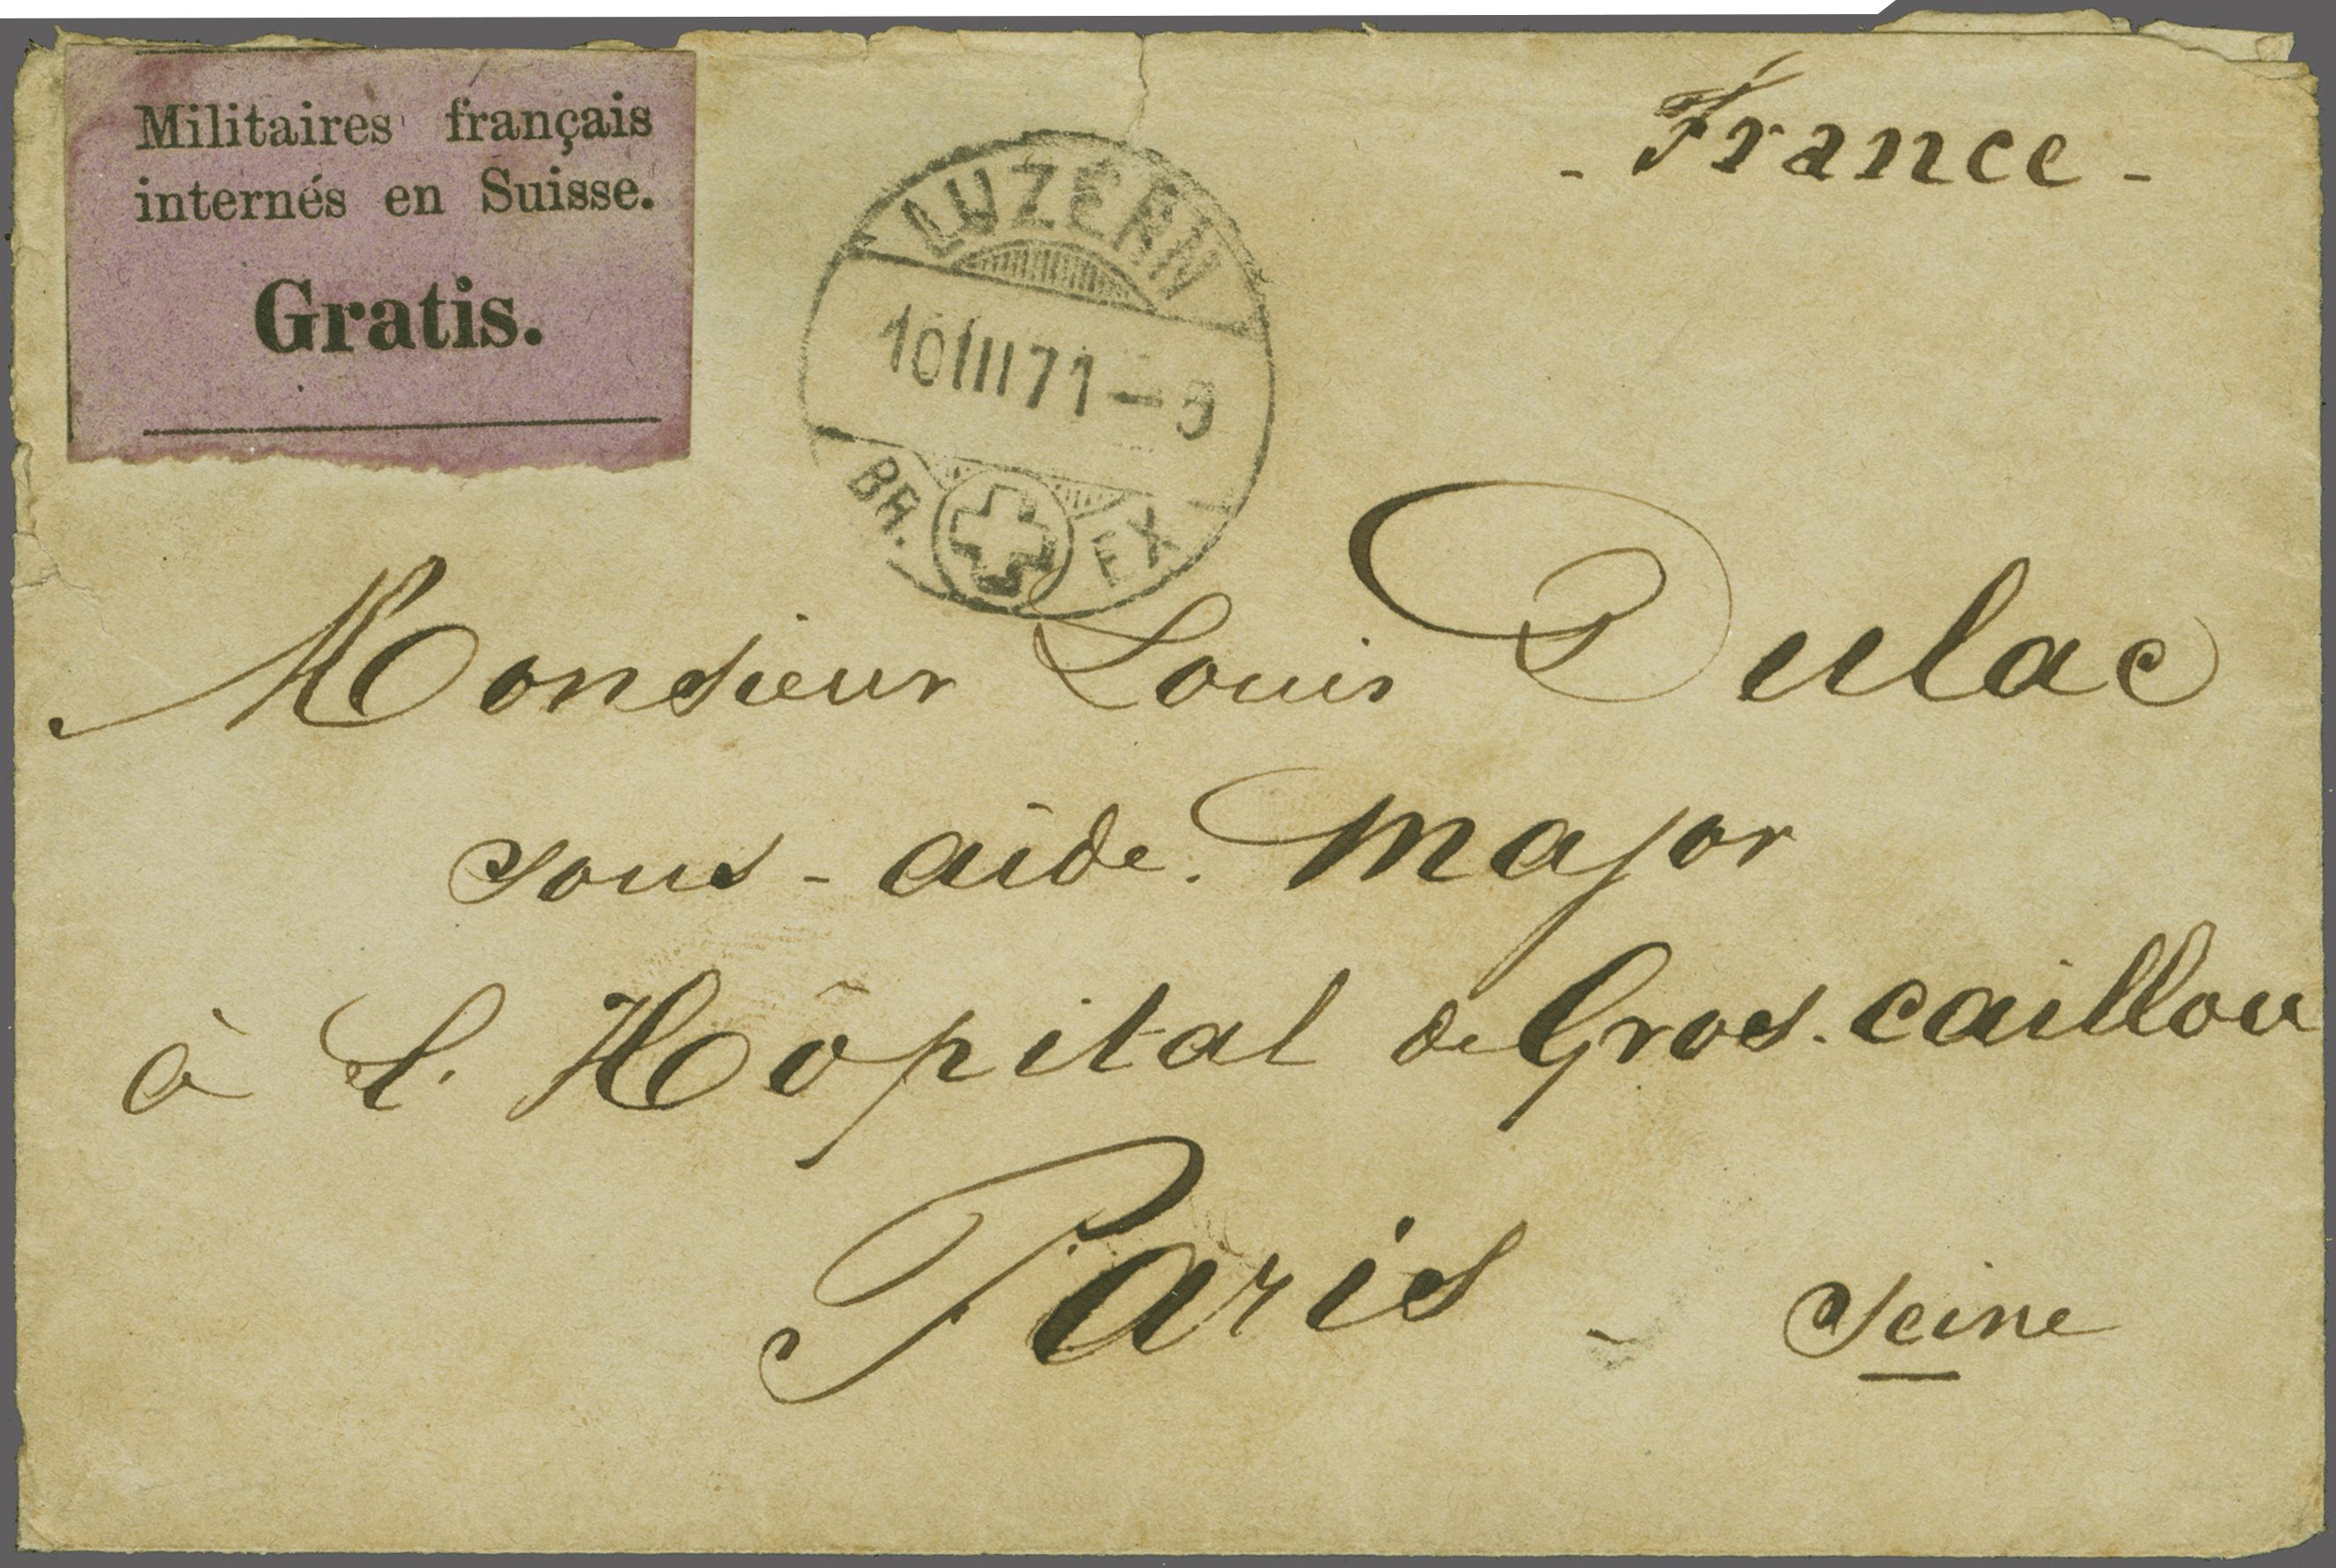 Militaires français
internés en Suisse.
Gratis.
- France -
LUZERN
10 III 71 — 9
BR. EX
Monsieur Louis Dulac
sous-aide. Major
à l. Hôpital de Gros. caillou
Paris - Seine